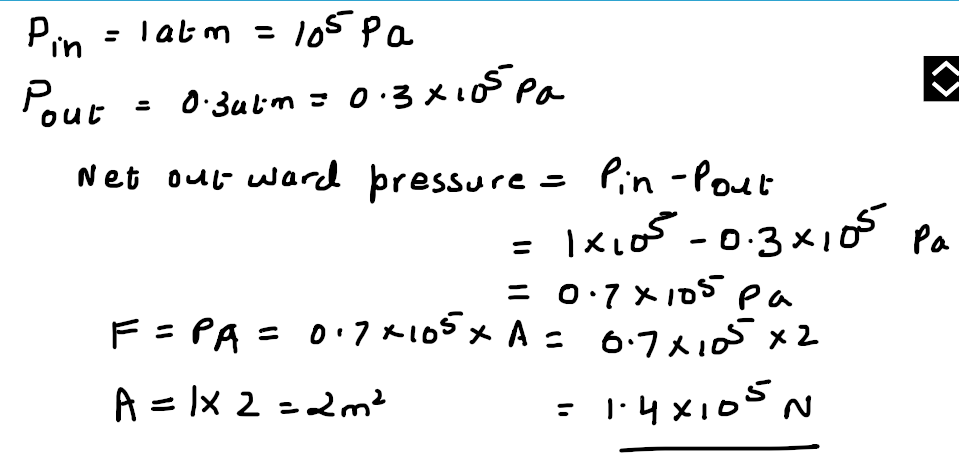 Pin = 1atm = 10⁵ Pa
Pout = 0.3atm = 0.3 × 10⁵ Pa
Net outward pressure = Pin - Pout
= 1×10⁵ - 0.3×10⁵ Pa
= 0.7 × 10⁵ Pa
F = PA = 0.7×10⁵ × A = 0.7×10⁵ × 2
A = 1× 2 = 2m² = 1.4 ×10⁵ N